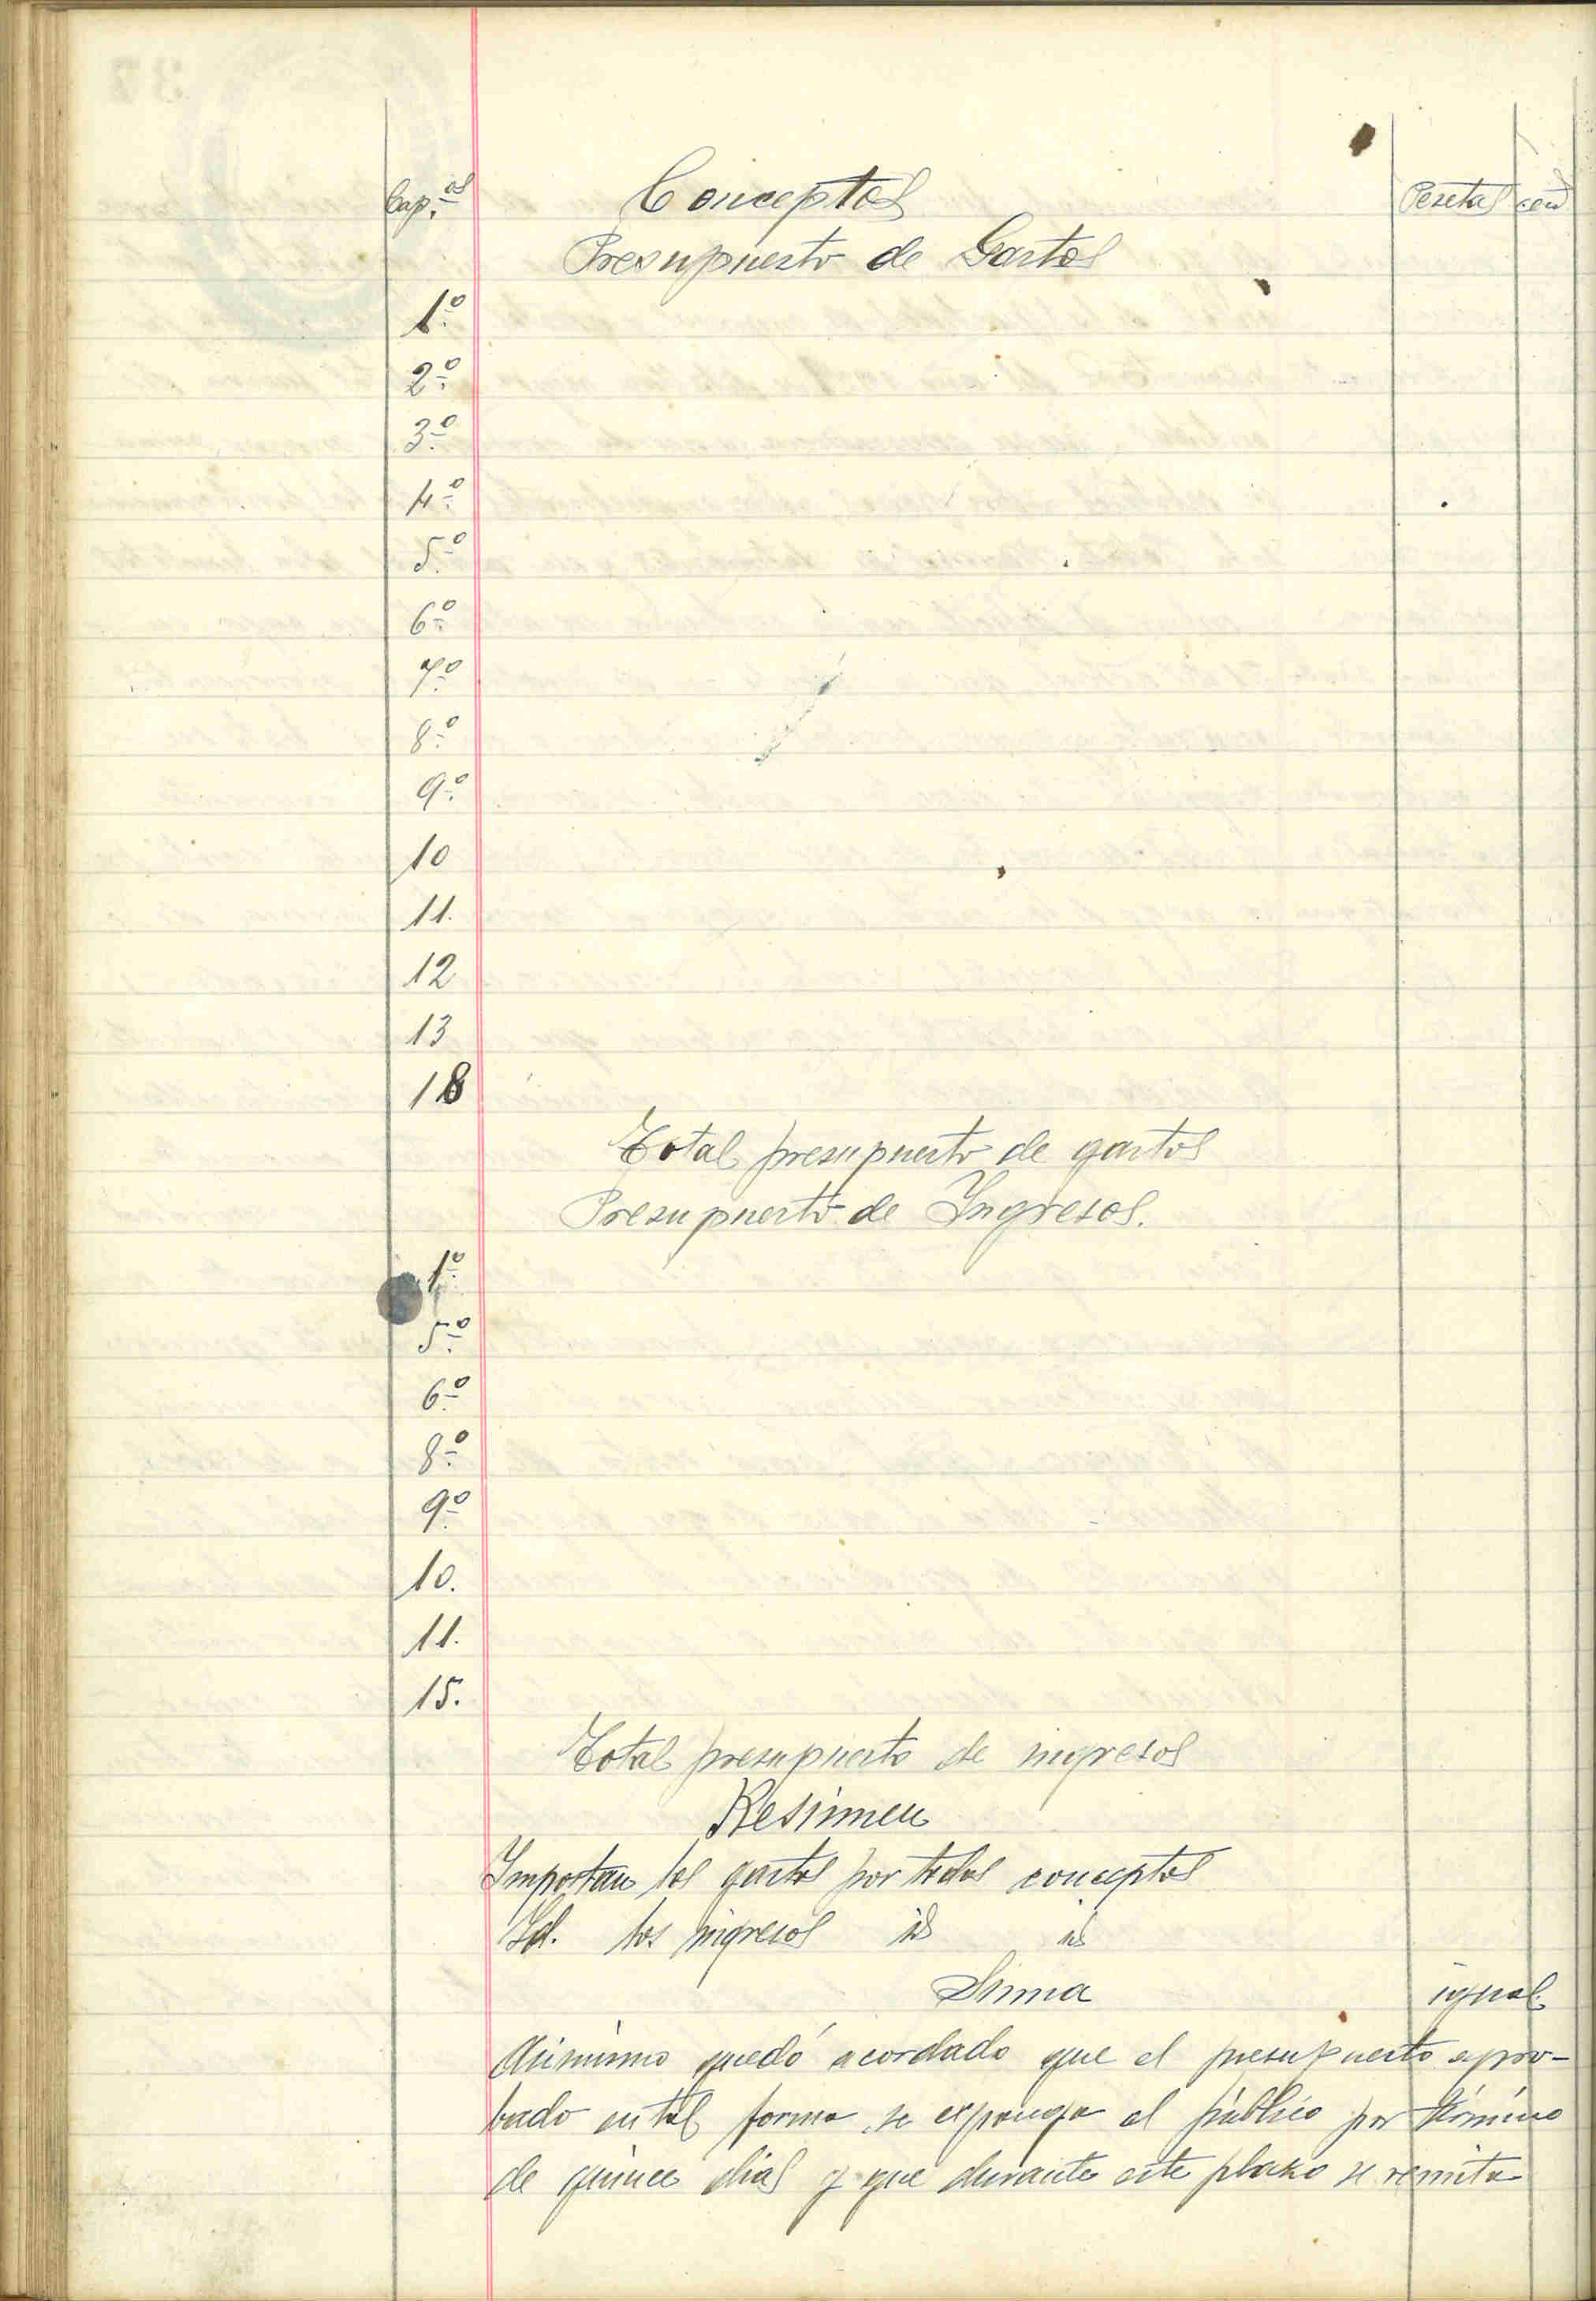 Cap.os Conceptos Pesetas cen
Presupuesto de Gastos
1º
2º
3º
4º
5º
6º
7º
8º
9º
10
11.
12
13
18
Total presupuesto de gastos
Presupuesto de Ingresos.
1º
5º
6º
8º
9º
10.
11.
15.
Total presupuesto de ingresos
Resumen
Importan los gastos por todos conceptos
Id. los ingresos id id
Suma igual
Asimismo quedó acordado que el presupuesto apro-
bado en tal forma se exponga al público por término
de quince dias y que durante este plazo se remita